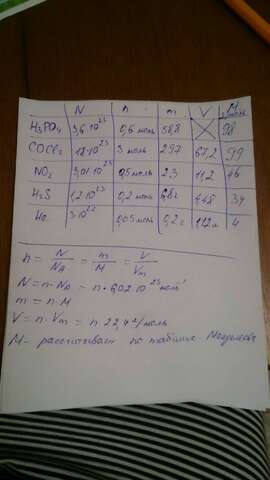 N n m V M г/моль
H3PO4 3,6·10^23 0,6 моль 58,8 98
COCl2 18·10^23 3 моль 297 67,2 99
NO2 3,01·10^23 0,5 моль 23 11,2 46
H2S 1,2·10^23 0,2 моль 6,8г 4,48 34
He 3·10^22 0,05 моль 0,2 г 1,12 л 4
n = N/NA = m/M = V/Vm
N = n·NA = n·6,02·10^23 моль^-1
m = n·M
V = n·Vm = n·22,4 л/моль
M - рассчитываем по таблице Менделеева